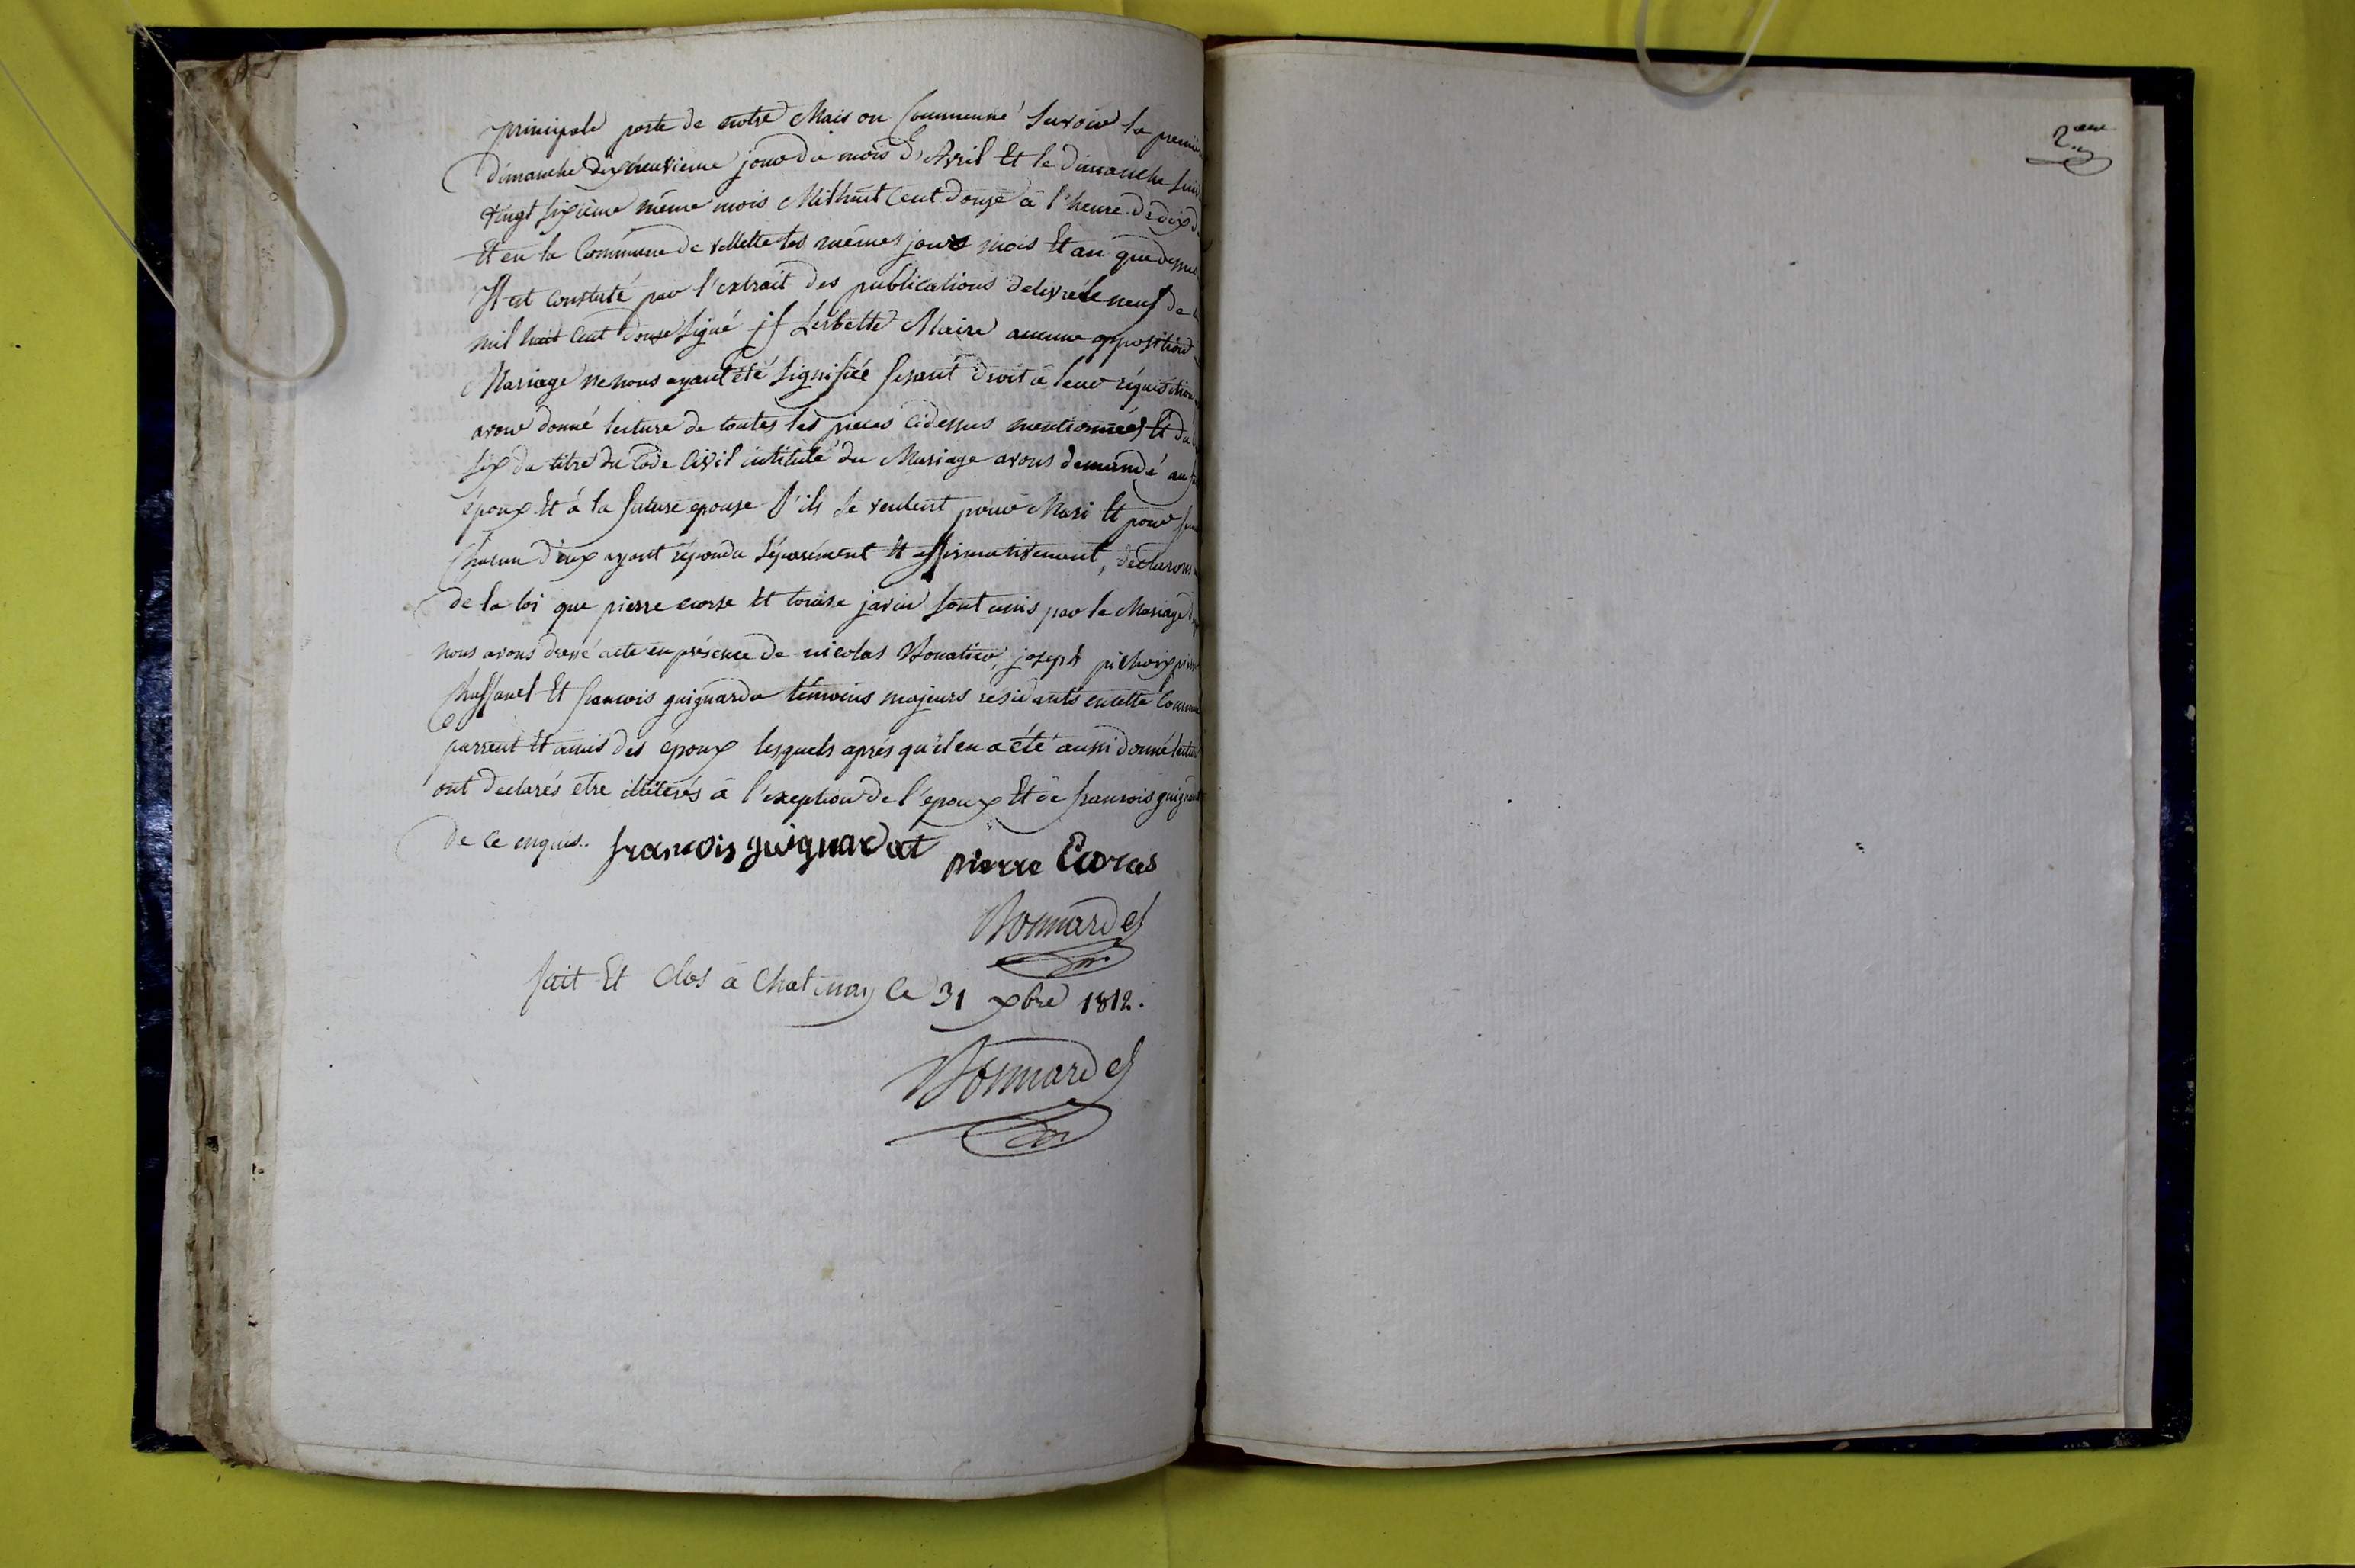 principale porte de notre Maison Commune Savoir la premiere
dimanche dix neuvieme jour du mois d'Avril Et le dimanche suiv
vingt sixième même mois Mil huit Cent douze à l'heure de dix
Et en la Commune de les mêmes jours mois Et an que dessus
Il est constaté par l'extrait des publications delivré le neuf de
mil huit Cent douze Signé jf Maire aucune opposition
Mariage ne nous ayant été Signifiée fesant droit à leur réquisition
avoir donné lecture de toutes les pieces cidessus mentionnées Et du
six du titre du Code Civil intitulé du Mariage avons demandé au
époux Et à la future epouse S'ils se veulent pour Mari Et pour
Chacun d'eux ayant répondu Séparément Et affirmativement, declarons
de la loi que pierre Et Louise javin sont unis par le Mariage
nous avons dressé acte en présence de nicolas joseph
Et francois guignarda témoins majeurs residants en cette Commune
parrent Et amis des époux lesquels aprés qu'il en a été aussi donné lecture
ont declarés etre illiterés à l'exeption de l'epoux Et de francois guignar
de ce enquis. francois guignardat pierre
Bonnardel
fait Et Clos à Chatenay le 31 xbre 1812.
Bonnardel
2.eme